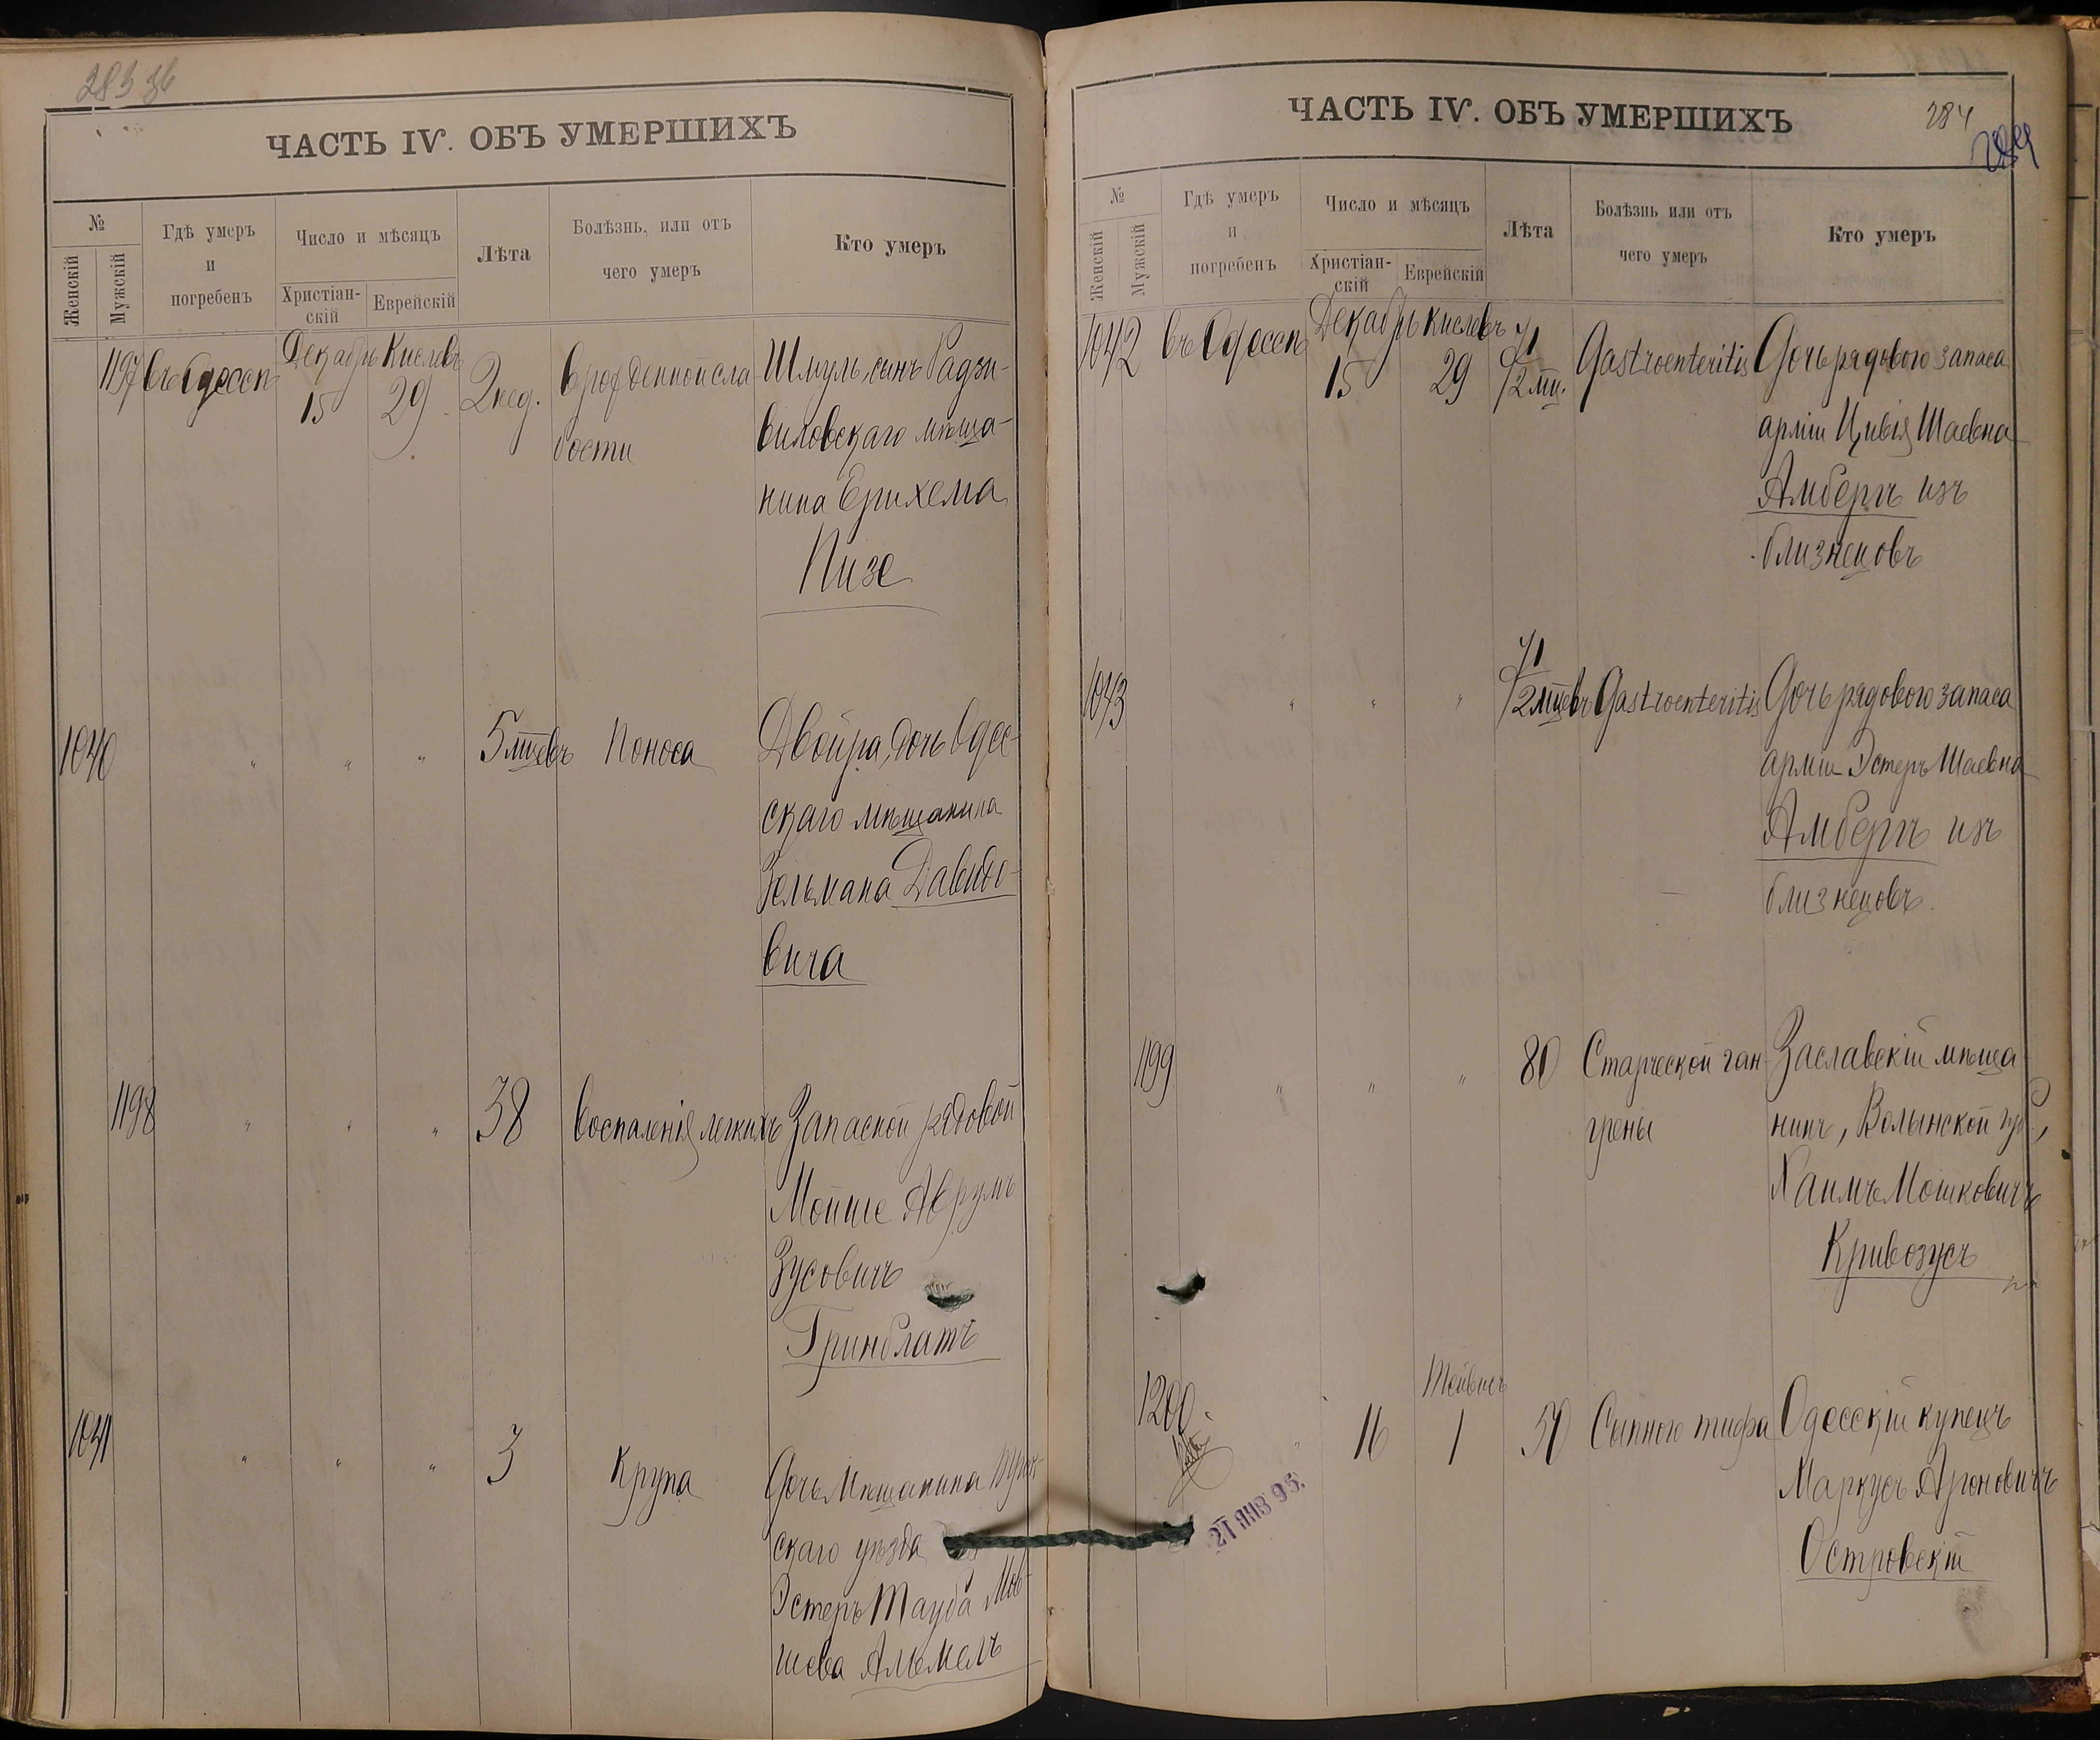 283 зб
ЧАСТЬ IV. ОБЪ УМЕРШИХЪ
№
Женскій
Мужскій
Гдѣ умеръ
и
погребенъ
Число и мѣсяцъ
Христіан-
скій
Еврейскій
Лѣта
Болѣзнь, или отъ
чего умеръ
Кто умеръ
1197 въ Одессѣ Декабрь 15 Кислевъ 29 2 нед. Врожденной сла-
бости
Шмуль, сынъ Радзи-
виловскаго мѣща-
нина Ерихема
Пизе
1040 " " " 5 мцевъ Поноса Двойра, дочь Одес-
скаго мѣщанина
Зельмана Давидо-
вича
1198 " " " 38 Воспаленія легкихъ Запасной рядовой
Мойше Аврумъ
Зусовичъ
Гринблатъ
1041 " " " 3 Крупа Дочь Мѣщанина
скаго уѣзда
Эстеръ Тауба Мов-
шева Альмелъ
ЧАСТЬ IV. ОБЪ УМЕРШИХЪ
284
284
№
Женскій
Мужскій
Гдѣ умеръ
и
погребенъ
Число и мѣсяцъ
Христіан-
скій
Еврейскій
Лѣта
Болѣзнь или отъ
чего умеръ
Кто умеръ
1042 въ Одессѣ Декабрь 15 Кислевъ 29 1/2 мц. Gastroenteritis Дочь рядового запаса
арміи Цивія Шаевна
Амбергъ изъ
близнецовъ
1043 " " " 1/2 мцевъ Gastroenteritis Дочь рядового запаса
арміи Эстеръ Шаевна
Амбергъ изъ
близнецовъ.
1199 " " " 80 Старческой ган-
грены
Заславскій мѣща-
нинъ, Волынской губ.,
Хаимъ Мошковичъ
Кривозусъ
1200 " 16 Тейвисъ 1 50 Сыпного тифа Одесскій купецъ
Маркусъ Ароновичъ
Островскій
21 ЯНВ 95.